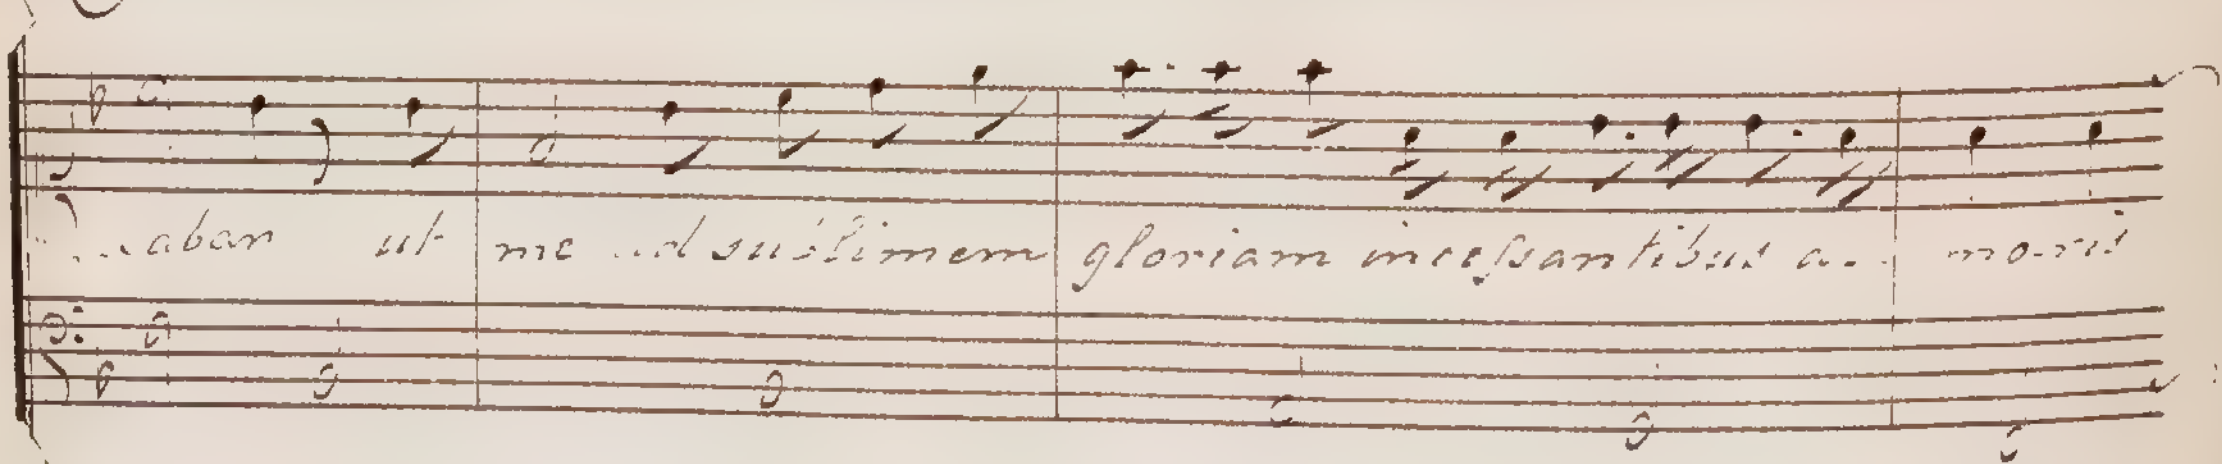 ut me ad sublimem gloriam incessantibus a - - mo-ris